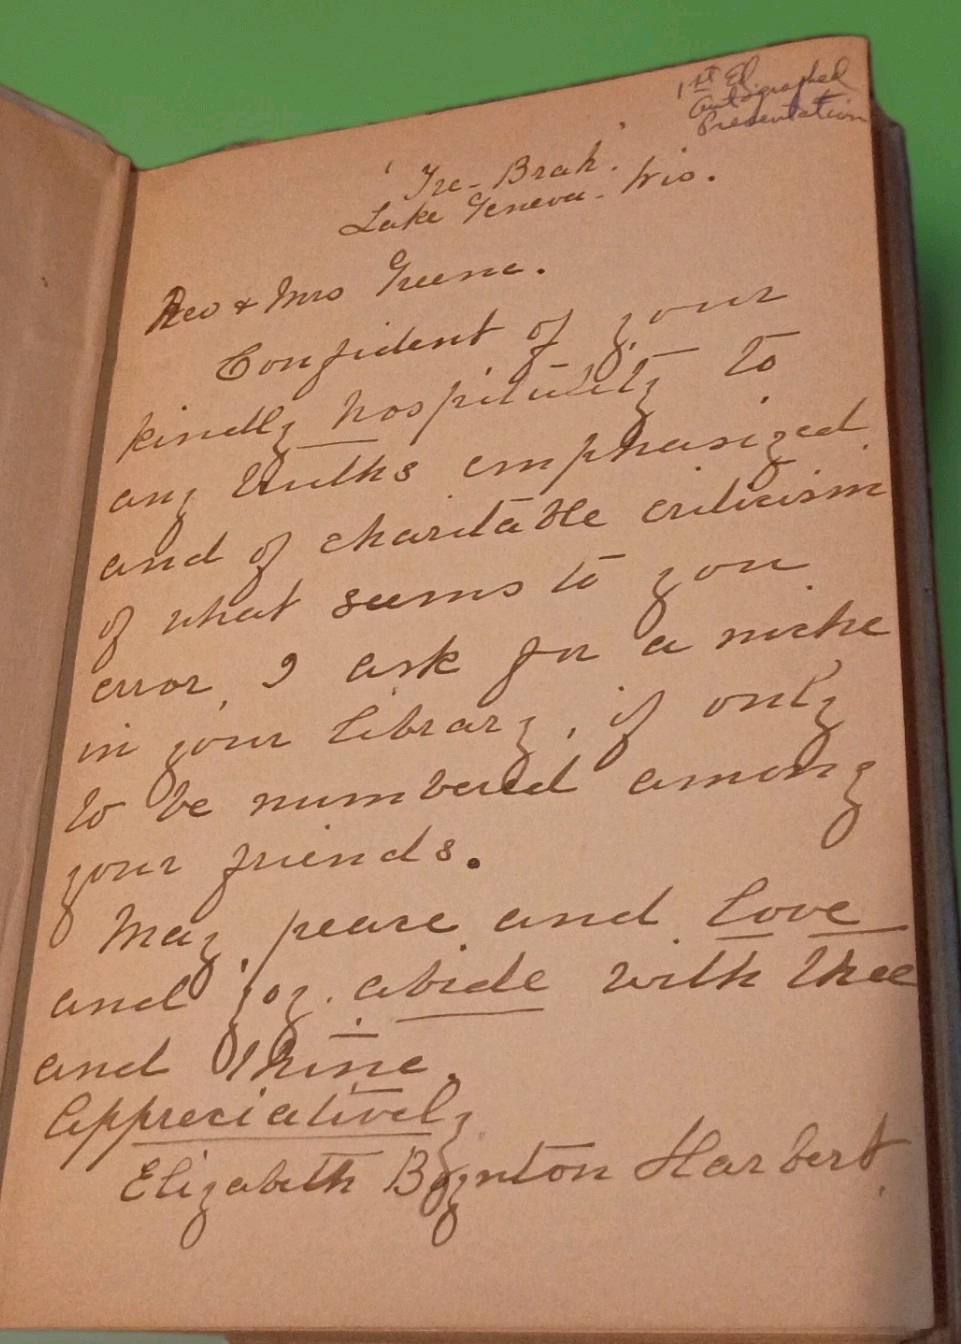 1st Ed
Autographed
Presentation
'Tre-Brah.'
Lake Geneva - Wis.
Rev & Mrs Greene.
Confident of your
kindly hospitality to
any truths emphasized
and of charitable criticism
of what seems to you
error, I ask for a niche
in your library, if only
to be numbered among
your friends.
May peace and love
and joy abide with thee
and thine.
Appreciatively
Elizabeth Boynton Harbert